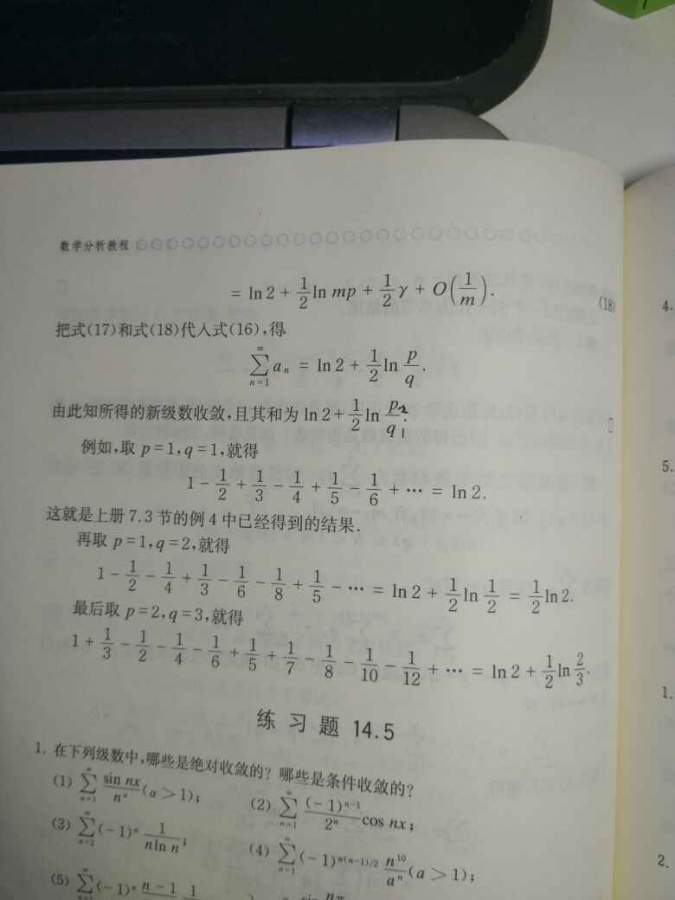 数学分析教程
= ln 2 + 1/2 ln mp + 1/2 γ + O(1/m). (18
把式(17)和式(18)代入式(16),得
∑_{n=1}^{∞} a_n = ln 2 + 1/2 ln p/q.
由此知所得的新级数收敛,且其和为 ln 2 + 1/2 ln p/q.
例如,取 p=1,q=1,就得
1 - 1/2 + 1/3 - 1/4 + 1/5 - 1/6 + ⋯ = ln 2.
这就是上册 7.3 节的例 4 中已经得到的结果.
再取 p=1,q=2,就得
1 - 1/2 - 1/4 + 1/3 - 1/6 - 1/8 + 1/5 - ⋯ = ln 2 + 1/2 ln 1/2 = 1/2 ln 2.
最后取 p=2,q=3,就得
1 + 1/3 - 1/2 - 1/4 - 1/6 + 1/5 + 1/7 - 1/8 - 1/10 - 1/12 + ⋯ = ln 2 + 1/2 ln 2/3.
练习题 14.5
1. 在下列级数中,哪些是绝对收敛的?哪些是条件收敛的?
(1) ∑_{n=1}^{∞} sin nx/n^α (α>1); (2) ∑_{n=1}^{∞} (-1)^{n-1}/2^n cos nx;
(3) ∑_{n=2}^{∞} (-1)^n 1/(n ln n); (4) ∑_{n=1}^{∞} (-1)^{n(n-1)/2} n^10/a^n (a>1);
(5) ∑(-1)^n n-1 1
4.
5.
1.
2.